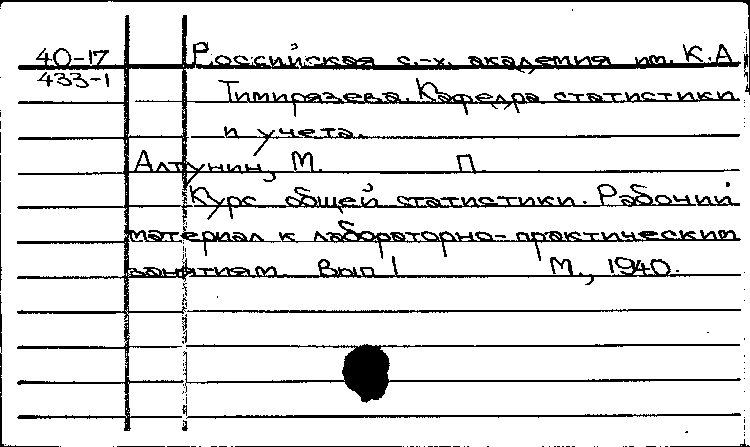 40-17 Российская с.-х. академия им. К.А
433-1 Тимирязева. Кафедра статистики
и учета.
Алтунин, М. П.
Курс общей статистики. Рабочий
материал к лабораторно-практическим
занятиям. Вып 1 М., 1940.